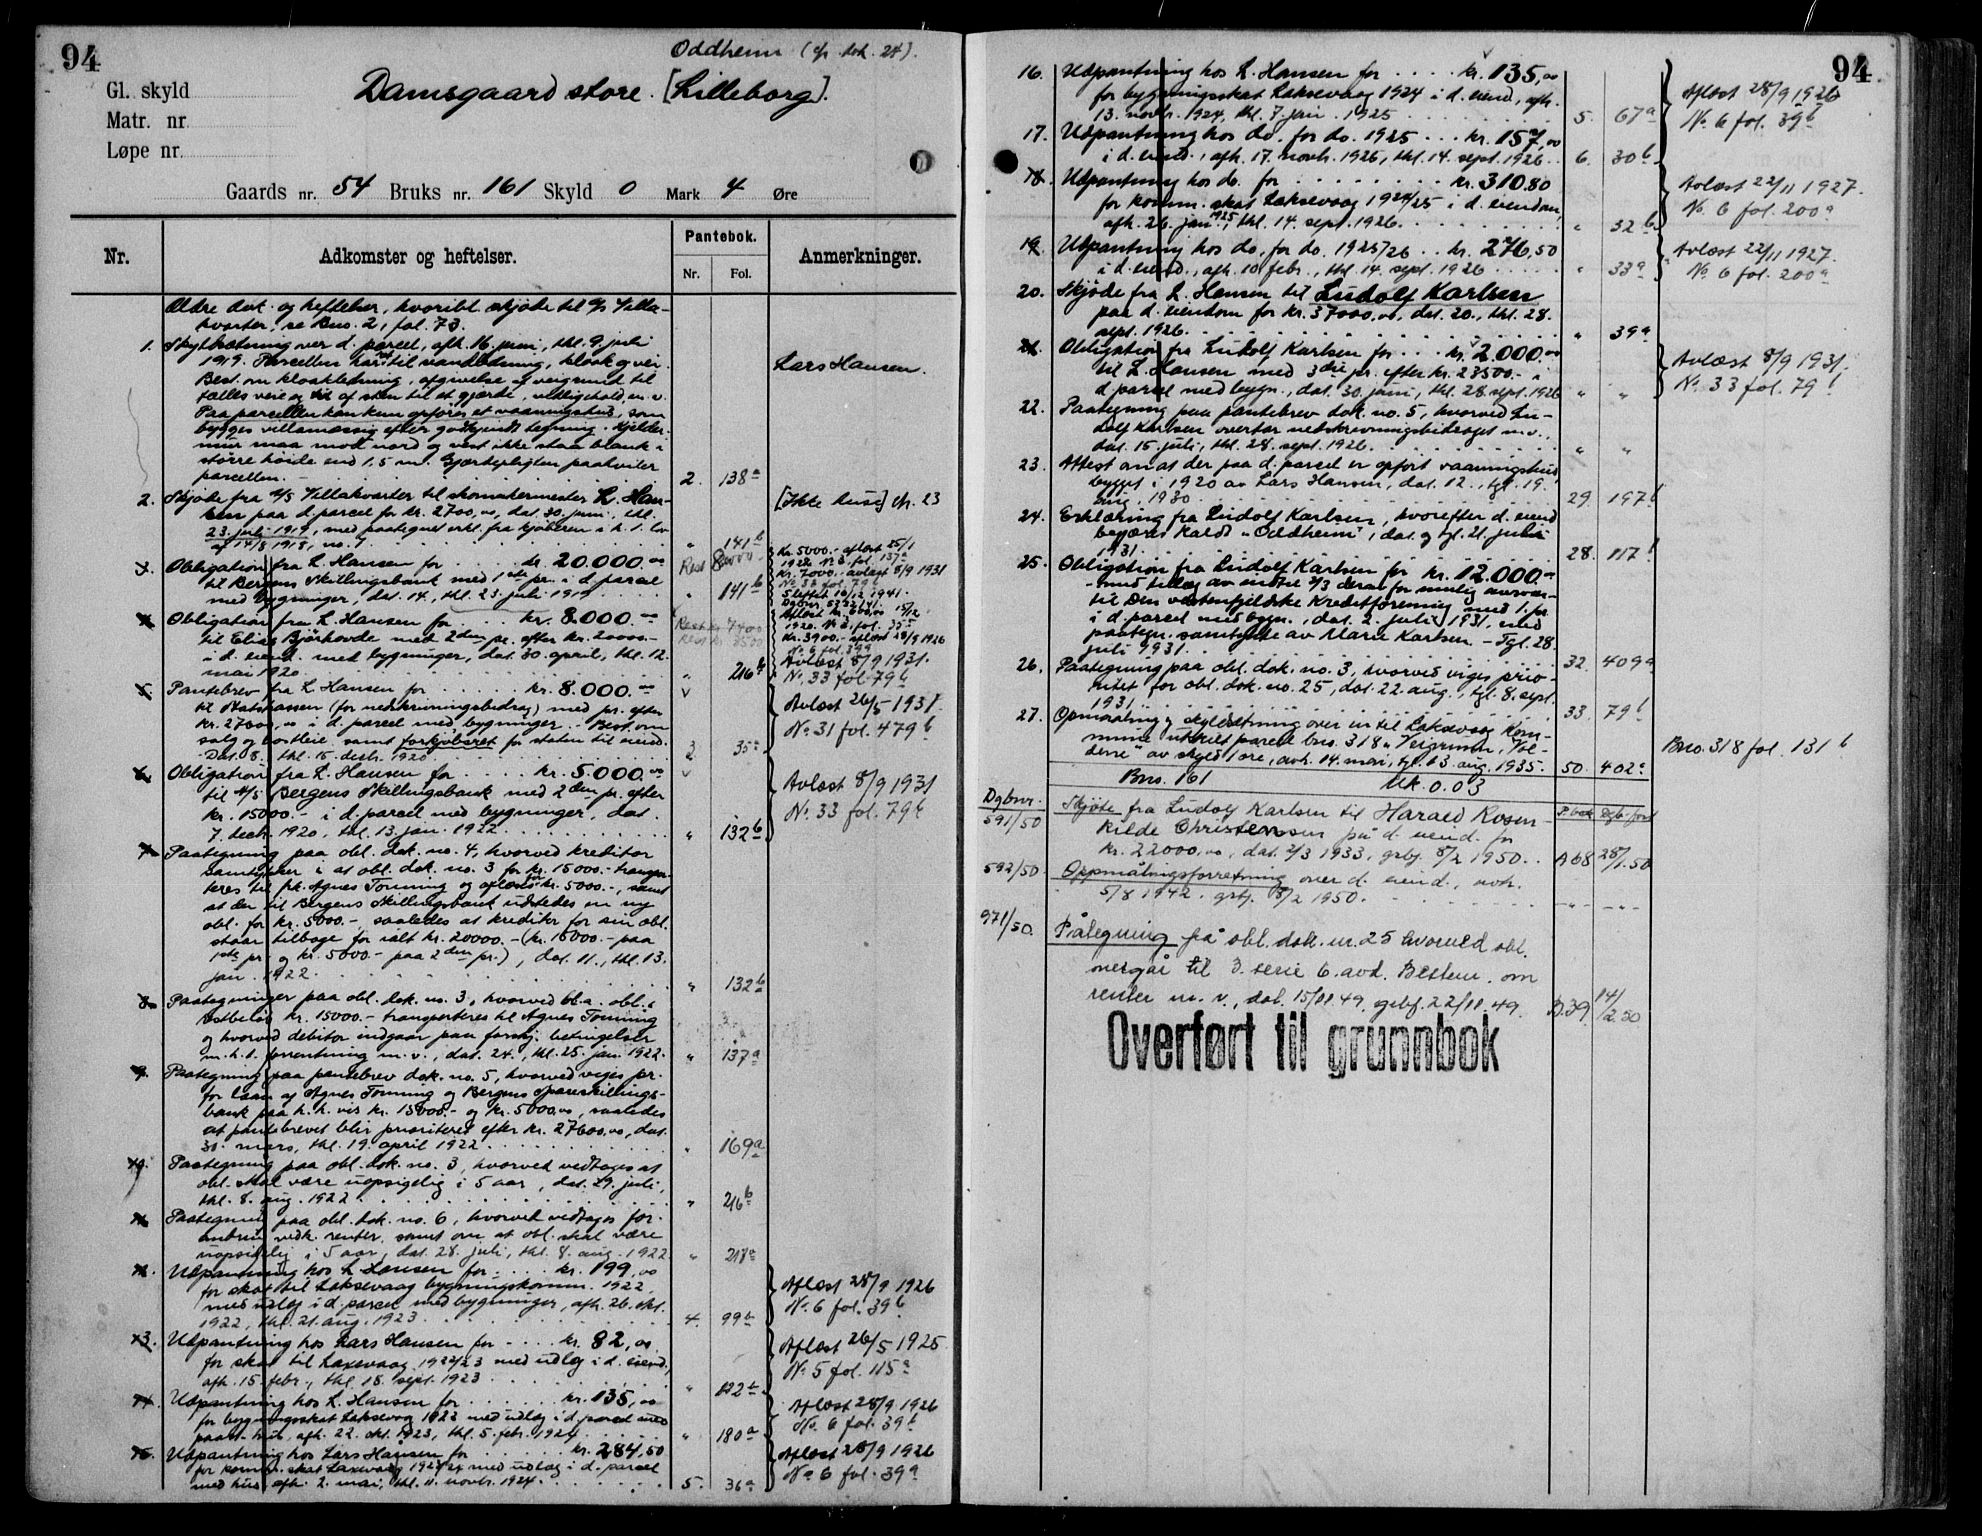 94
Oddheim (cfr. dok. 24).
Damsgaard store. [Lilleborg].
Gl. skyld
Matr. nr
Løpe nr.
Gaards nr. 54 Bruks nr. 161 Skyld 0 Mark 4 Øre
Nr. Adkomster og heftelser. Pantebok. Anmerkninger.
Nr. Fol.
Ældre dok. og heftelser, hvoribl. skjøde til A/S Villa-
kvarter, se Bno. 2, fol. 73.
1. Skyldsætning over d. parcel, afh. 16. juni, thl. 9. juli
1919. Parcellen har ret til vandledning, kloak og vei.
Best. om kloakledning, afgivelse af veigrund til
fælles veie og af sten til et gjærde, vedligehold, m. v.
Paa parcellen kan kun opføres et vaaningshus, som
bygges villamæssig efter godkjendt tegning. Kjelder-
mur maa mod nord og vest ikke staa blank i
større høide end 1,5 m. Gjerdepligten paahviler
parcellen. 2. 138a
Lars Hansen.
2. Skjøde fra A/S Villakvarter til skomakermester L. Han-
sen paa d. parcel for kr. 2700,00, dat. 30. juni, thl.
23. juli 1919, med paategnet erkl. fra kjøberen i h. t. lov
af 14/8 1918, no. 1. " 141b
[Ikke hus] cfr. 23
3. Obligation fra L. Hansen for kr. 20.000.00
til Bergens Skillingsbank med 1ste pr. i d. parcel
med bygninger, dat. 14., thl. 23. juli 1919 " 141b
Rest 8000
Kr. 5000.- afløst 25/1
1922 No 3 fol. 137a
Kr. 7000.- avløst 8/9 1931
No 33 fol. 79b
Slettet 16/12 1941.
4. Obligation fra L. Hansen for kr. 8.000.00
til Elias Bjørkovde med 2den pr. efter kr. 20000.-
i d. eiend. med bygninger, dat. 30. april, thl. 12.
mai 1920 " 216b
Rest kr. 7400
Afløst kr. 600,00 15/12
1920. No 3. fol. 35a
Kr. 3900.- afløst 28/9 1926
No 6 fol. 39a
Avløst 8/9 1931.
No. 33 fol. 79b
5. Pantebrev fra L. Hansen for kr. 8.000.-
til Statskassen (for nedskrivningsbidrag) med pr. efter
kr. 27600,00 i d. parcel med bygninger. Best. om
salg og bortleie samt forkjøbsret for staten til eiend.
Dat. 8., thl. 15. decbr. 1920 3 35a
Avløst 26/5 1931.
No. 31 fol. 479b
6. Obligation fra L. Hansen for kr. 5.000.00
til A/S Bergens Skillingsbank med 2den pr. efter
kr. 15000.- i d. parcel med bygninger, dat.
7. decbr. 1920, thl. 13. jan. 1922 " 132b
Avløst 8/9 1931
No. 33 fol. 79b
7. Paategning paa obl. dok. no. 4, hvorved kreditor
samtykker i at obl. dok. no. 3 for kr. 15000.- transpor-
teres til frk. Agnes Tonning og afløses for kr. 5000.-, samt
at der til Bergens Skillingsbank udstedes en ny
obl. for kr. 5000.-, saaledes at kreditor for sin obl.
staar tilbage for ialt kr. 20000.- (kr. 15000.- paa
1ste pr. og kr. 5000.- paa 2den pr.), dat. 11., thl. 13.
jan. 1922 " 132b
8. Paategninger paa obl. dok. no. 3, hvorved bl. a. obl.s
restbeløb kr. 15000.- transporteres til Agnes Tonning
og hvorved debitor indgaar paa forskj. betingelser
m. h. t. forrentning m. v., dat. 24., thl. 25. jan. 1922. " 137a
9. Paategning paa pantebrev dok. no. 5, hvorved viges pr.
for laan af Agnes Tonning og Bergens Spareskillings-
bank paa h. h. vis kr. 15000.- og kr. 5000.00, saaledes
at pantebrevet blir prioritert efter kr. 27600,00, dat.
31. mars, thl. 19. april 1922 " 169a
10. Paategning paa obl. dok. no. 3, hvorved vedtages at
obl. skal være uopsigelig i 5 aar, dat. 29. juli,
thl. 8. aug. 1922 " 216b
11. Paategning paa obl. dok. no. 6, hvorved vedtages for-
andring vedk. renter, samt om at obl. skal være
uopsigelig i 5 aar, dat. 28. juli, thl. 8. aug. 1922 " 217a
12. Udpantning hos L. Hansen for kr. 199,00
for skat til Laksevaag bygningskomm. 1922
med udlæg i d. parcel med bygninger, afh. 26. okt.
1922, thl. 21. aug. 1923 4. 99b
Afløst 28/9 1926
No. 6 fol. 39b
13. Udpantning hos Lars Hansen for kr. 82,00
for skat til Laxevaag 1922/23 med udlæg i d. eiend.,
afh. 15. febr., thl. 18. sept. 1923 " 122b
Afløst 26/5 1925
No 5 fol. 115a
14. Udpantning hos L. Hansen for kr. 135,00
for bygningsskat Laksevaag 1923 med udlæg i d. parcel med
paast. hus, afh. 22. okt. 1923, thl. 5. febr. 1924 " 180a
Afløst 28/9 1926
No. 6 fol. 39b
15. Udpantning hos Lars Hansen for kr. 284,50
for komm. skat Laxevaag 1923/24 med udlæg i d. parcel
med hus, afh. 2. mai, thl. 11. novbr. 1924. 5. 36a
Afløst 28/9 1926
No 6 fol. 39a
94
16. Udpantning hos L. Hansen for kr. 135,00
for bygningsskat Laksevaag 1924 i d. eiend., afh.
13. novbr. 1924, thl. 7. jan. 1925 5. 67a
Afløst 28/9 1926
No. 6 fol. 39b
17. Udpantning hos do. for do. 1925 kr. 157,00
i d. eiend., afh. 17. novbr. 1926, thl. 14. sept. 1926 6. 30b
18. Udpantning hos do. for kr. 310.80
for komm. skat Laksevaag 1924/25 i d. eiendom,
afh. 26. jan. 1925, thl. 14. sept. 1926. " 32b
Avløst 22/11 1927.
No. 6 fol. 200a
19. Utpantning hos do. for do. 1925/26 kr. 276,50
i d. eiend., afh. 10. febr., thl. 14. sept. 1926 " 33a
Avløst 22/11 1927.
No. 6 fol. 200a
20. Skjøde fra L. Hansen til Ludolf Karlsen
paa d. eiendom for kr. 37000,00, dat. 20., thl. 28.
sept. 1926. " 39a
21. Obligation fra Ludolf Karlsen for kr. 2.000.00
til L. Hansen med 3die pr. efter kr. 23500.- i
d. parcel med bygn., dat. 30. juni, thl. 28. sept. 1926 " "
Avløst 8/9 1931.
No. 33 fol. 79b
22. Paategning paa pantebrev dok. no. 5, hvorved Lu-
dolf Karlsen overtar nedskrivningsbidraget m. v.,
dat. 15. juli, thl. 28. sept. 1926. " "
23. Attest om at der paa d. parcel er opført vaaningshus
bygget i 1920 av Lars Hansen, dat. 12., tgl. 19.
aug. 1930 29 197b
24. Erklæring fra Ludolf Karlsen, hvorefter d. eiend.
begjæres kaldt "Oddheim", dat. og tgl. 21. juli
1931. 28. 117b
25. Obligation fra Ludolf Karlsen for kr. 12.000.-
- med tillæg av indtil 2/3 derav for mulig ansvar-
til Den vestenfjeldske Kreditforening med 1. pr.
i d. parcel med bygn., dat. 2. juli 1931, med
paategn. samtykke av Marie Karlsen - Tgl. 28.
juli 1931. 32. 409a
26. Paategning paa obl. dok. no. 3, hvorved viges prio-
ritet for obl. dok. no. 25, dat. 22 aug., tgl. 8. sept.
1931 33. 79b
27. Opmaaling og skyldsetning over en til Laksevaag Kom-
mune utskilt parcel bno. 318 "Veigrunn, Hol-
dene" av skyld 1 øre, avh. 14. mai, tgl. 13. aug. 1935. 50. 402a
Bno. 318 fol. 131b
Bno. 161 Mk. 0.03
Dgbnr. P.bok Dgb.ført
591/50 Skjøte fra Ludolf Karlsen til Harald Rosen-
kilde Christensen på d. eiend. for
kr. 22000,00, dat. 2/3 1933, grbf. 8/2 1950. A 68 28/1.50
592/50 Oppmålingsforretning over d. eiend., avh.
5/8 1942. grbf. 8/2 1950. -"- -"-
971/50. Påtegning på obl. dok. nr. 25 hvorved obl.
overgår til 3. serie 6. avd. Bestem. om
renter m. v., dat. 15/11.49, grbf. 22/11.49. B.39. 14/2.50
Overført til grunnbok